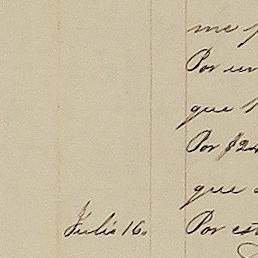 me
Por un
que
Por $24
que
Julio 16. Por est